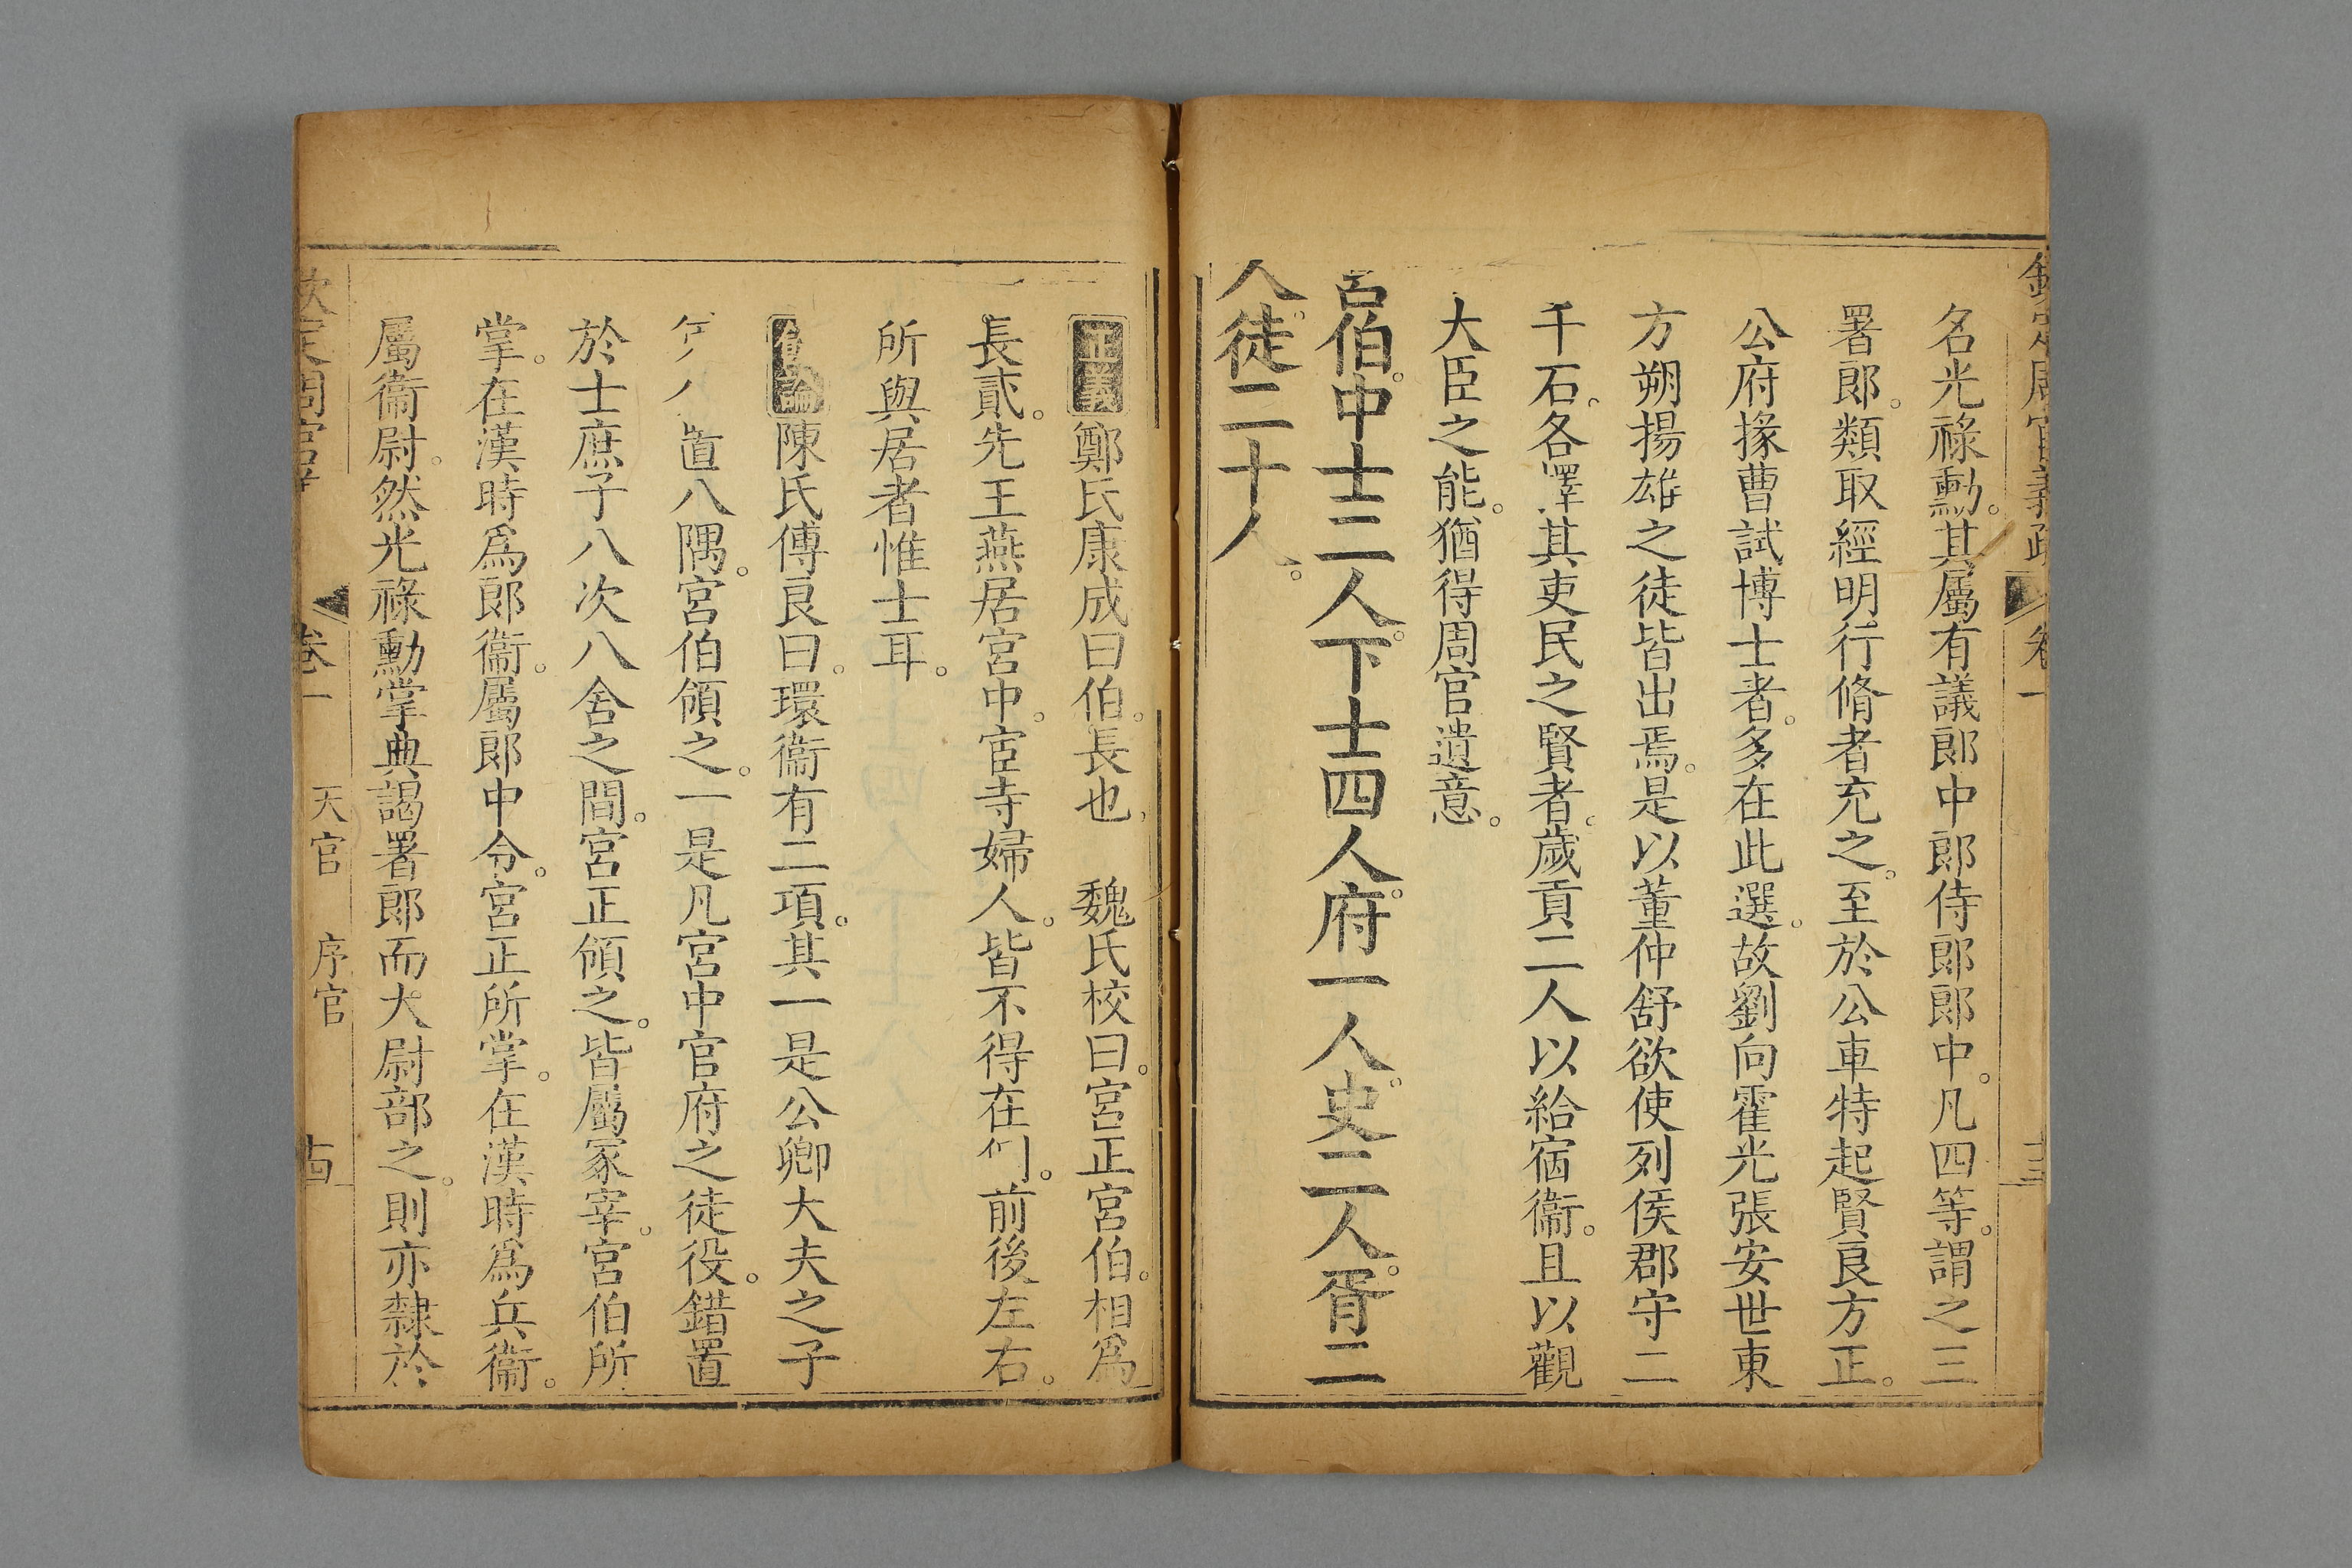 欽定周官義疏 卷一 十三
名光祿勳。其屬有議郎中郎侍郎郎中。凡四等。謂之三
署郎。類取經明行脩者充之。至於公車特起賢良方正。
公府掾曹試博士者。多在此選。故劉向霍光張安世東
方朔揚雄之徒皆出焉。是以董仲舒欲使列侯郡守二
千石。各擇其吏民之賢者。歲貢二人以給宿衞。且以觀
大臣之能。猶得周官遺意。
宮伯。中士二人。下士四人。府一人。史二人。胥二
人。徒二十人。
正義 鄭氏康成曰伯。長也。 魏氏校曰。宮正宮伯。相爲
長貳。先王燕居宮中。宦寺婦人。皆不得在側。前後左右。
所與居者惟士耳。
總論 陳氏傅良曰。環衞有二項。其一是公卿大夫之子
置八隅。宮伯領之。一是凡宮中官府之徒役。錯置
於士庶子八次八舍之間。宮正領之。皆屬冢宰。宮伯所
掌。在漢時爲郎衞。屬郎中令。宮正所掌。在漢時爲兵衞。
屬衞尉。然光祿勳掌典謁署郎而大尉部之。則亦隸於
欽定周官義 卷一 天官 序官 十四